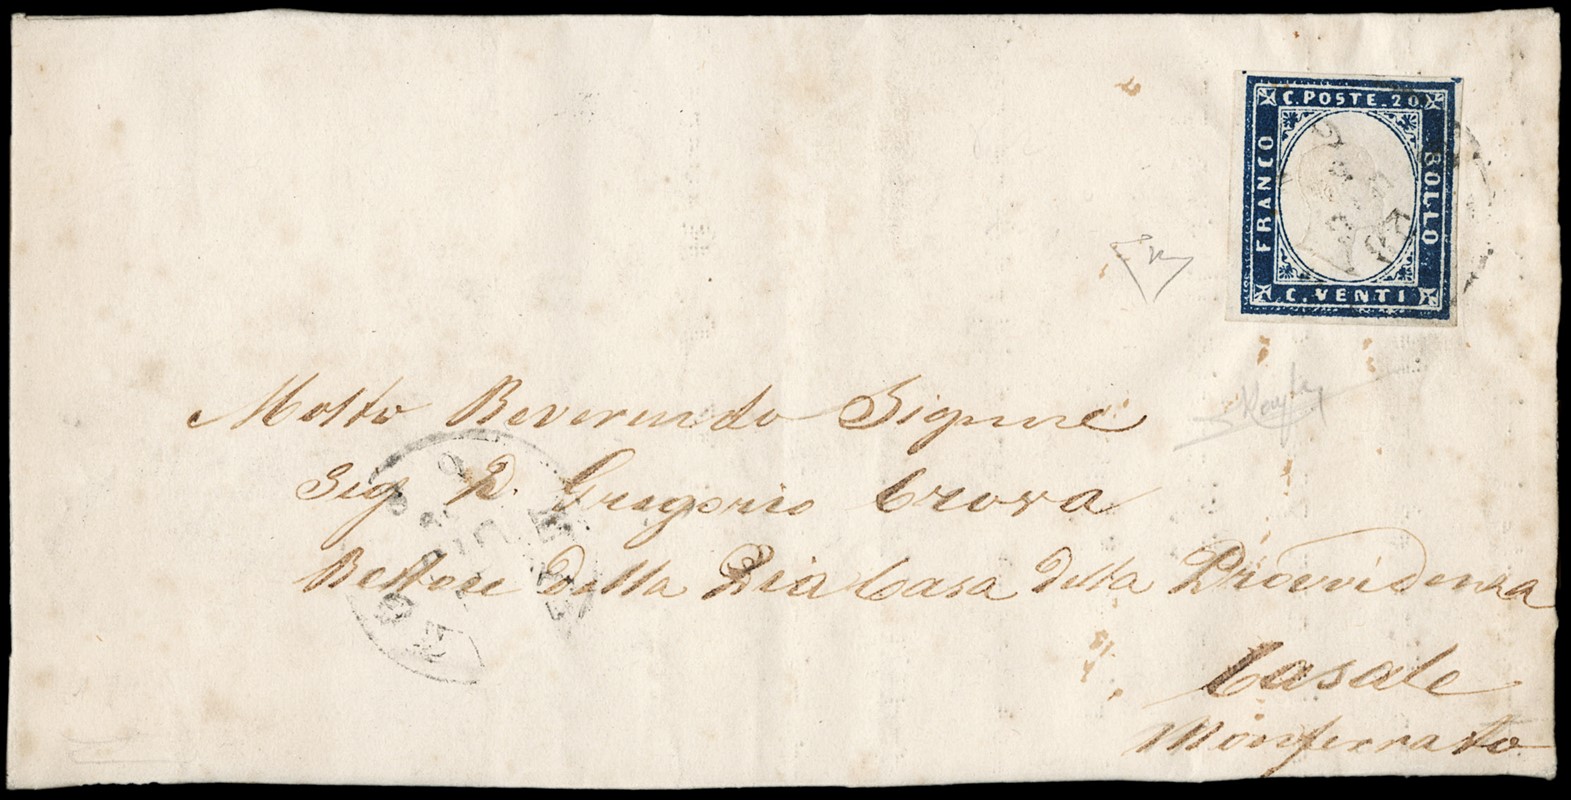 C. POSTE. 20
FRANCO
BOLLO
C. VENTI
Molto Reverendo Signore
Sig. D. Gregorio Crova
Rettore della Pia Casa della Provvidenza
Casale
Monferrato